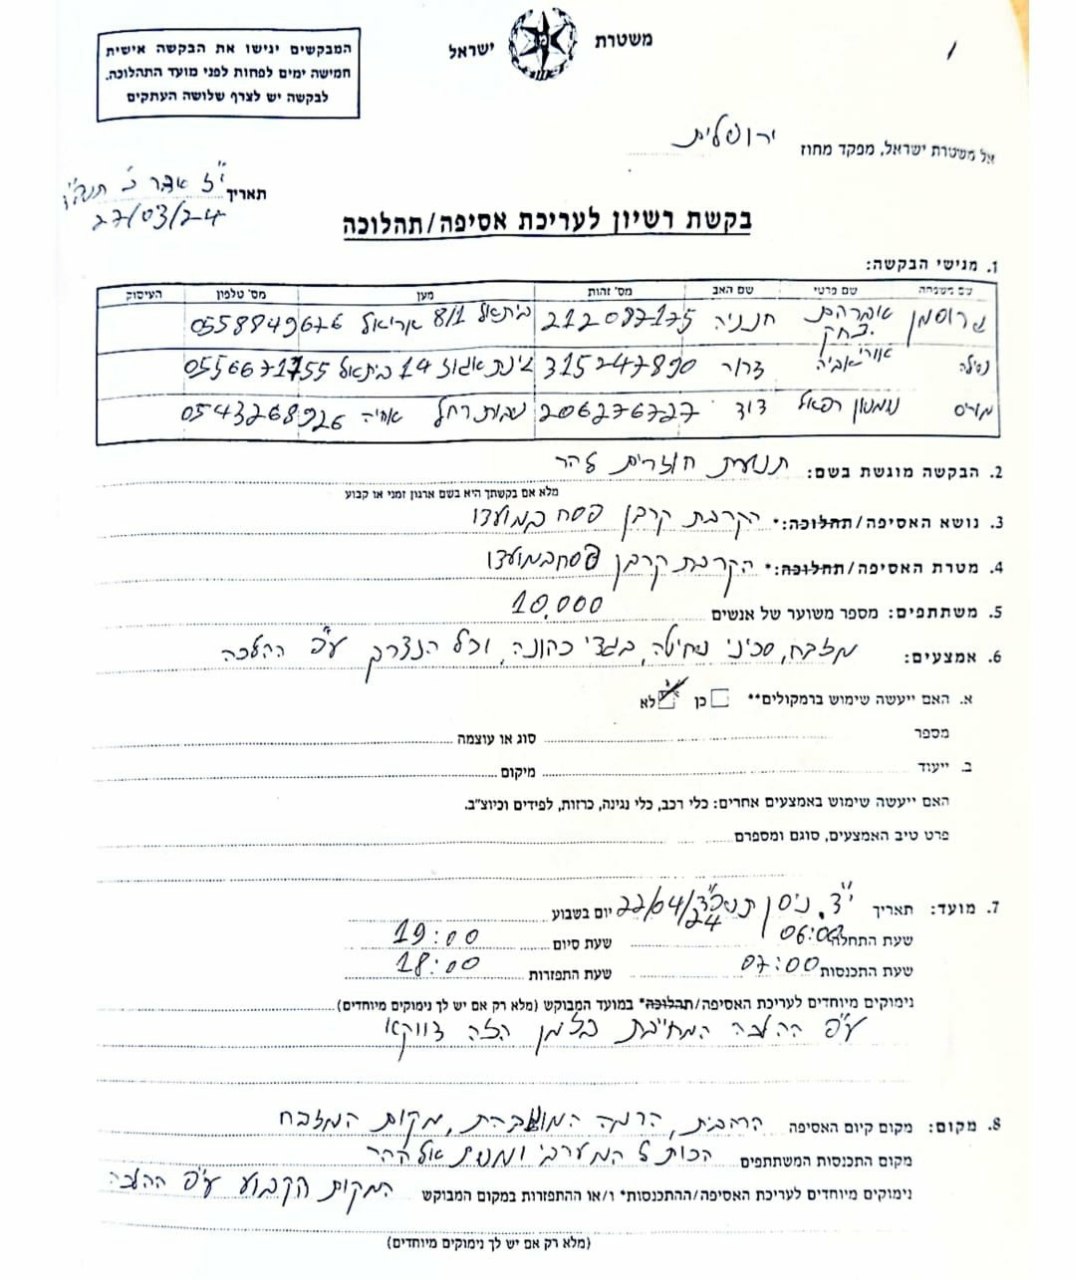 המבקשים יגישו את הבקשה אישית
חמישה ימים לפחות לפני מועד התהלוכה.
לבקשה יש לצרף שלושה העתקים
משטרת ישראל
אל משטרת ישראל, מפקד מחוז ירושלים
תאריך י"ז אדר ב'
27/03/24
בקשת רשיון לעריכת אסיפה/תהלוכה
1. מגישי הבקשה:
שם משפחה שם פרטי שם האב מס' זהות מען מס' טלפון העיסוק
אברהם יצחק חנניה 212087175 בית אל אריאל 8/1 0558849676
אורי אביה דרור 315247890 גינת אגוז 14 בית אל 0556671755
שמעון רפאל דוד 206276727 שבות רחל 0543268926
2. הבקשה מוגשת בשם: תנועת חוזרים להר
מלא אם בקשתך היא בשם ארגון זמני או קבוע
3. נושא האסיפה/תהלוכה:* הקרבת קרבן פסח במועדו
4. מטרת האסיפה/תהלוכה:* הקרבת קרבן פסח במועדו
5. משתתפים: מספר משוער של אנשים 10,000
6. אמצעים: מזבח, סכיני שחיטה, בגדי כהונה, וכל הנצרך ע"פ ההלכה
א. האם ייעשה שימוש ברמקולים** כן לא
מספר סוג או עוצמה
ב. ייעוד מיקום
האם ייעשה שימוש באמצעים אחרים: כלי רכב, כלי נגינה, כרזות, לפידים וכיוצ"ב.
פרט טיב האמצעים, סוגם ומספרם
7. מועד: תאריך י"ד ניסן תשפ"ד 22/04/24 יום בשבוע
שעת התחלה 06:00 שעת סיום 19:00
שעת התכנסות 07:00 שעת התפזרות 18:00
נימוקים מיוחדים לעריכת האסיפה/תהלוכה* במועד המבוקש (מלא רק אם יש לך נימוקים מיוחדים)
ע"פ ההלכה המחייבת בזמן הזה דווקא
8. מקום: מקום קיום האסיפה הר הבית, הרמה המוגבהת, מקום המזבח
מקום התכנסות המשתתפים הכותל המערבי ומשם אל ההר
נימוקים מיוחדים לעריכת האסיפה/ההתכנסות* ו/או ההתפזרות במקום המבוקש המקום הקבוע ע"פ ההלכה
(מלא רק אם יש לך נימוקים מיוחדים)